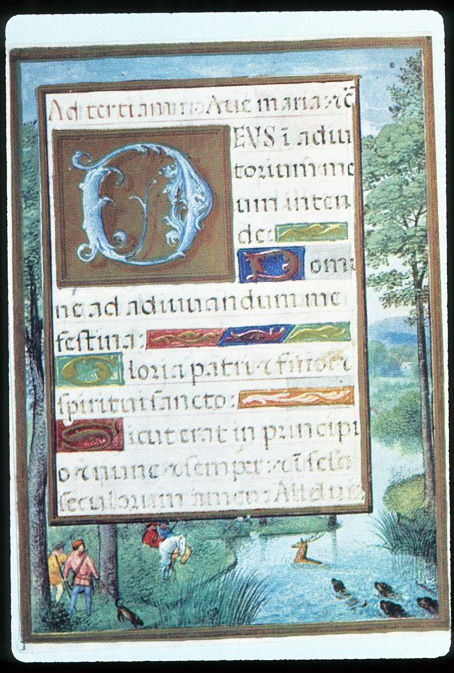 Ad tertiam Aue maria ⁊c̄
DEVS ī adiu
torium me
um inten
de:
Domi
ne ad adiuuandum me
festina:
Gloria patri ⁊ filio: ⁊
spiritui sancto:
Sicut erat in principi
o ⁊ nunc ⁊ semper: ⁊ ī sc̄la
seculorum amen: Alleluia